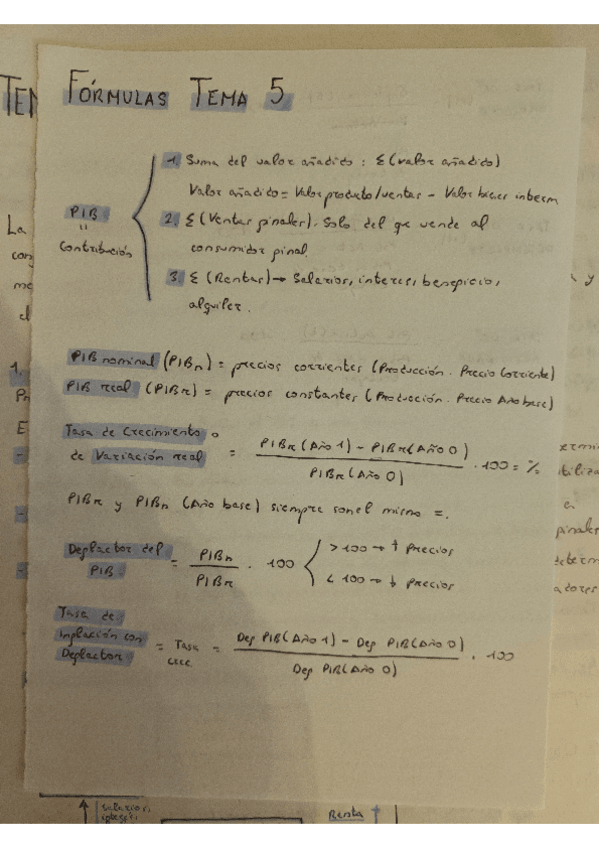 FÓRMULAS TEMA 5
1. Suma del valor añadido : Σ(valor añadido)
Valor añadido = Valor producto/ventas - Valor bienes interm
PIB
=
Contribución
2. Σ(Ventas finales). Solo del que vende al
consumidor final.
3. Σ(Rentas)→ Salarios, interes, beneficio,
alquiler.
PIB nominal (PIBn) = precios corrientes (Producción · Precio Corriente)
PIB real (PIBr) = precios constantes (Producción · Precio Año base)
Tasa de Crecimiento o
de Variación real = PIBr (Año 1) - PIBr (Año 0) / PIBr (Año 0) · 100 = %
PIBr y PIBn (Año base) siempre son el mismo =.
Deflactor del
PIB = PIBn / PIBr · 100
> 100 → ↑ Precios
< 100 → ↓ Precios
Tasa de
inflación con
Deflactor = Tasa
crec.
Def PIB (Año 1) - Def PIB (Año 0) / Def PIB (Año 0) · 100
TEM
La
me
el
1.
E
y
finales
adores
Salarios,
Renta ↑